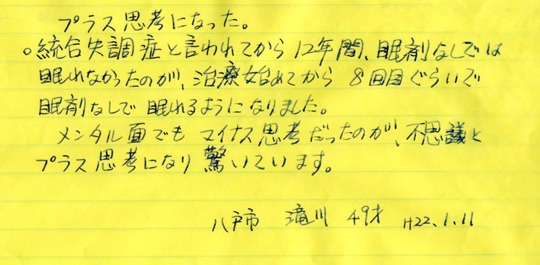 プラス思考になった。
○統合失調症と言われてから12年間、眠剤なしでは
眠れなかったのが、治療始めてから 8回目ぐらいで
眠剤なしで眠れるようになりました。
メンタル面でも マイナス思考だったのが、不思議と
プラス思考になり 驚いています。
八戸市 滝川 49才 H22.1.11